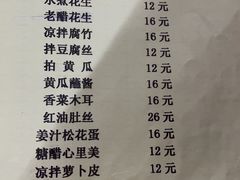 水煮花生 12元
老醋花生 16元
凉拌腐竹 16元
拌豆腐丝 12元
拍黄瓜 12元
黄瓜蘸酱 16元
香菜木耳 16元
红油肚丝 26元
姜汁松花蛋 16元
糖醋心里美 12元
凉拌萝卜皮 12元